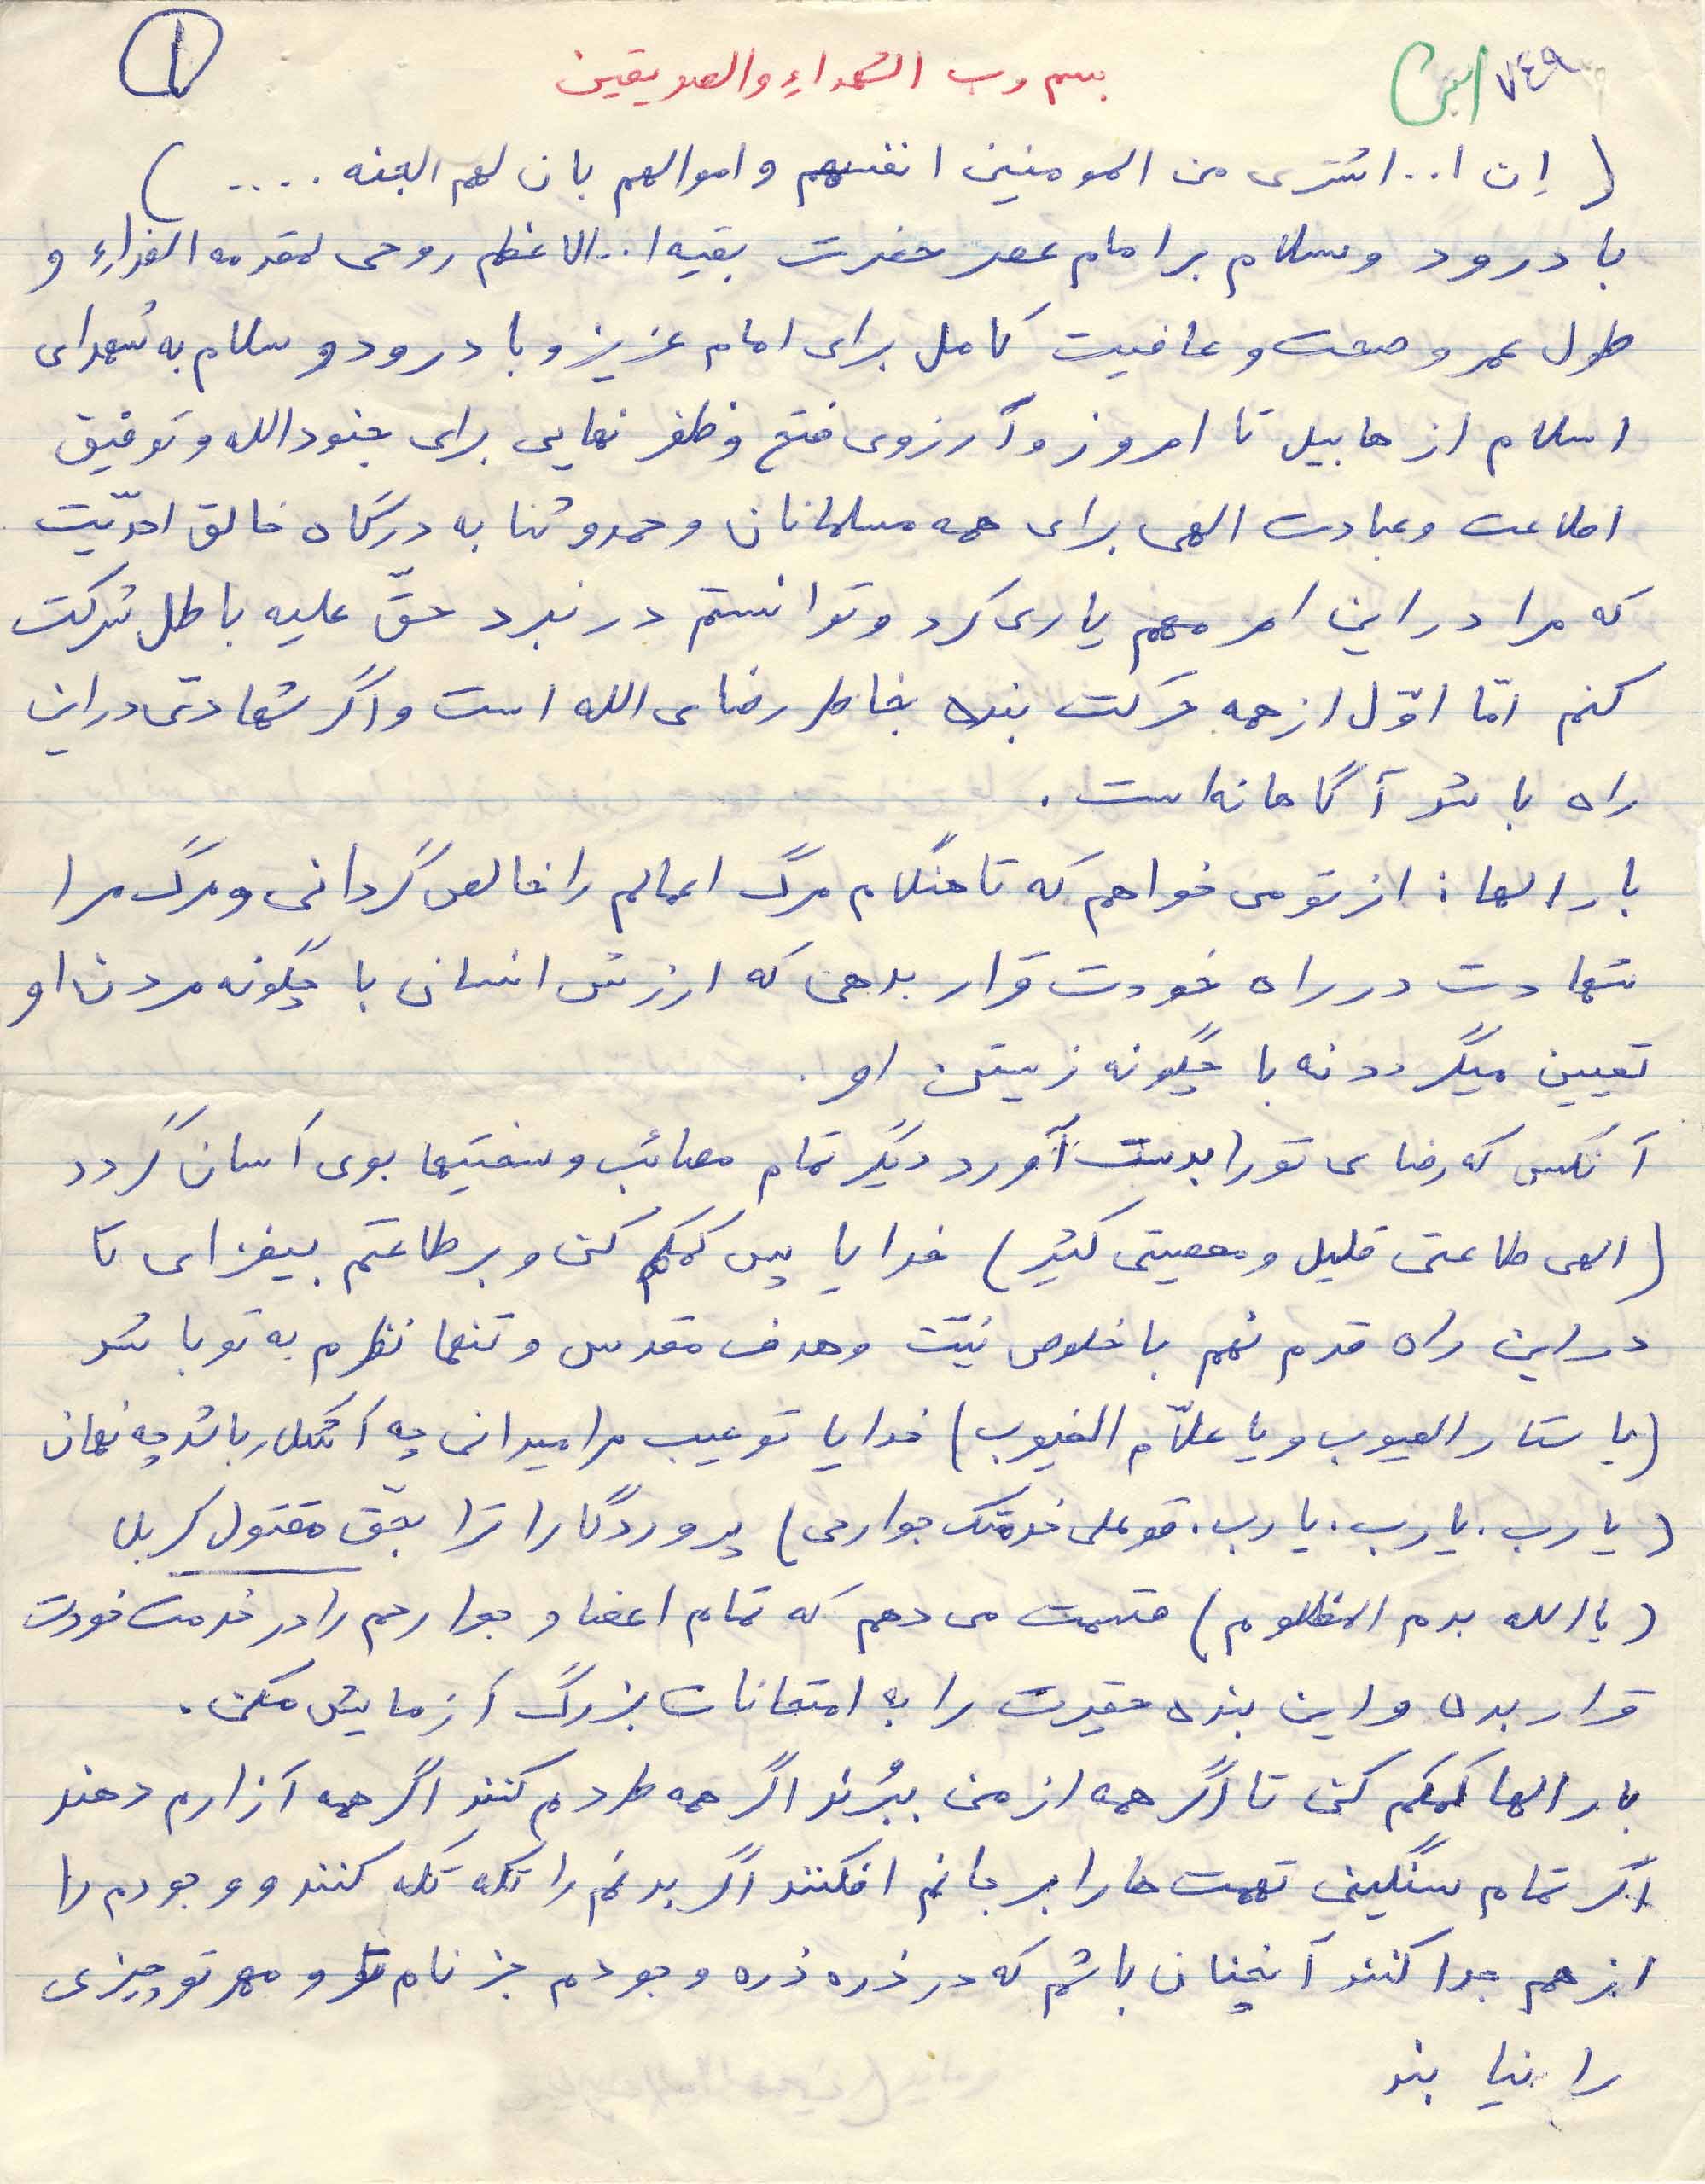 ۱
بسم رب الشهداء والصدیقین
۷٤۹
( اِن ا... اشتری من المومنین انفسهم و اموالهم بان لهم الجنه .... )
با درود و سلام بر امام عصر حضرت بقیه ا... الاعظم روحی لمقدمه الفداء و
طول عمر و صحت و عافیت کامل برای امام عزیز و با درود و سلام به شهدای
اسلام از هابیل تا امروز و آرزوی فتح و ظفر نهایی برای جنود الله و توفیق
اطاعت و عبادت الهی برای همه مسلمانان و حمد و ثنا به درگاه خالق احدّیت
که مرا در این امر مهم یاری کرد و توانستم در نبرد حقّ علیه باطل شرکت
کنم امّا اوّل از همه حرکت بنده بخاطر رضای الله است و اگر شهادتی در این
راه باشد آگاهانه است .
بار الها : از تو می خواهم که تا هنگام مرگ اعمالم را خالص گردانی و مرگ مرا
شهادت در راه خودت قرار بدهی که ارزش انسان با چگونه مردن او
تعیین میگردد نه با چگونه زیستن او .
آنکس که رضای تو را بدست آورد دیگر تمام مصائب و سختیها بوی آسان گردد
(الهی طاعتی قلیل و معصیتی کثیر) خدایا پس کمکم کن و بر طاعتم بیفزای تا
در این راه قدم نهم با خلوص نیّت و هدف مقدس و تنها نظرم به تو باشد
(یا ستار العیوب و یا علاّم الغیوب) خدایا تو عیب مرا میدانی چه آشکار باشد چه نهان
( یا رب . یا رب . یا رب . قو علی خدمتک جوارحی) پروردگارا ترا بحّق مقتول کربلا
( یا الله بدم المظلوم) قسمت می دهم که تمام اعضا و جوارحم را در خدمت خودت
قرار بده و این بنده حقیرت را به امتحانات بزرگ آزمایش مکن .
بار الها کمکم کن تا اگر همه از من ببُرند اگر همه طردم کنند اگر همه آزارم دهند
اگر تمام سنگینی تهمت ها را بر جانم افکنند اگر بدنم را تکه تکه کنند و وجودم را
از هم جدا کنند آنچنان باشم که در ذره ذره وجودم جز نام تو و مهر تو چیزی
را نیابند